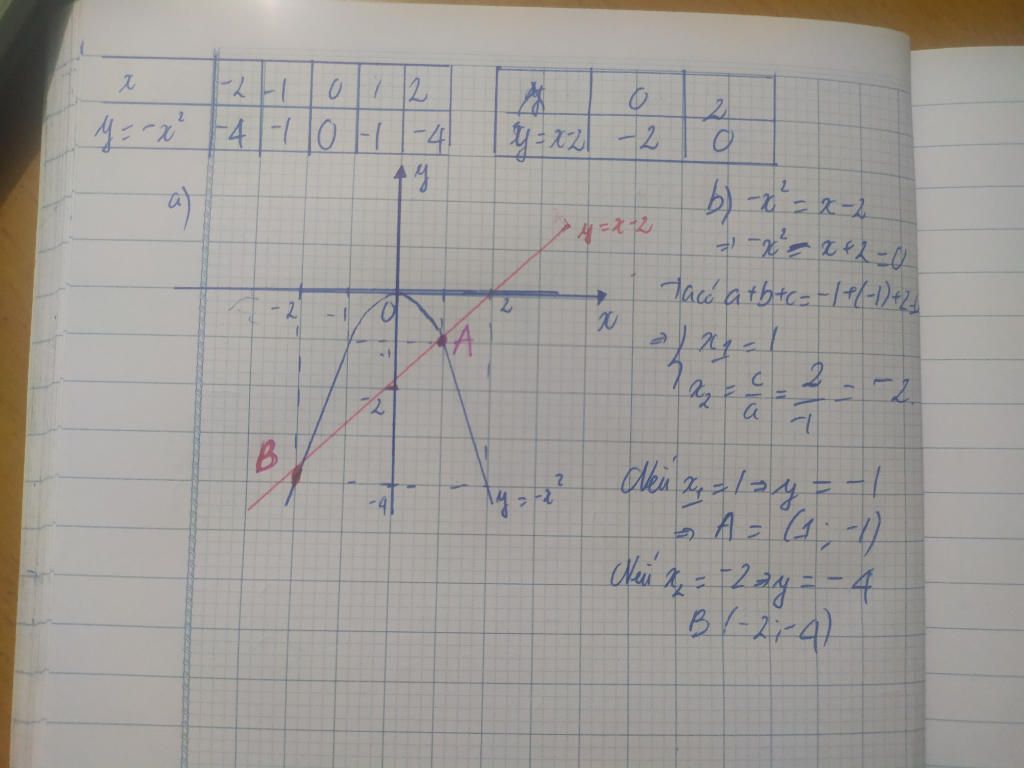 x -2 -1 0 1 2
y = -x² -4 -1 0 -1 -4
y 0 2
y = x-2 -2 0
a)
y
y = x-2
-2 -1 0 2 x
-1 A
-2
B
-4 y = -x²
b) -x² = x-2
⇒ -x² - x + 2 = 0
Ta có a+b+c = -1+(-1)+2
⇒ { x₁ = 1
x₂ = c/a = 2/-1 = -2
Nếu x₁ = 1 ⇒ y = -1
⇒ A = (1 ; -1)
Nếu x₂ = -2 ⇒ y = -4
B (-2; -4)